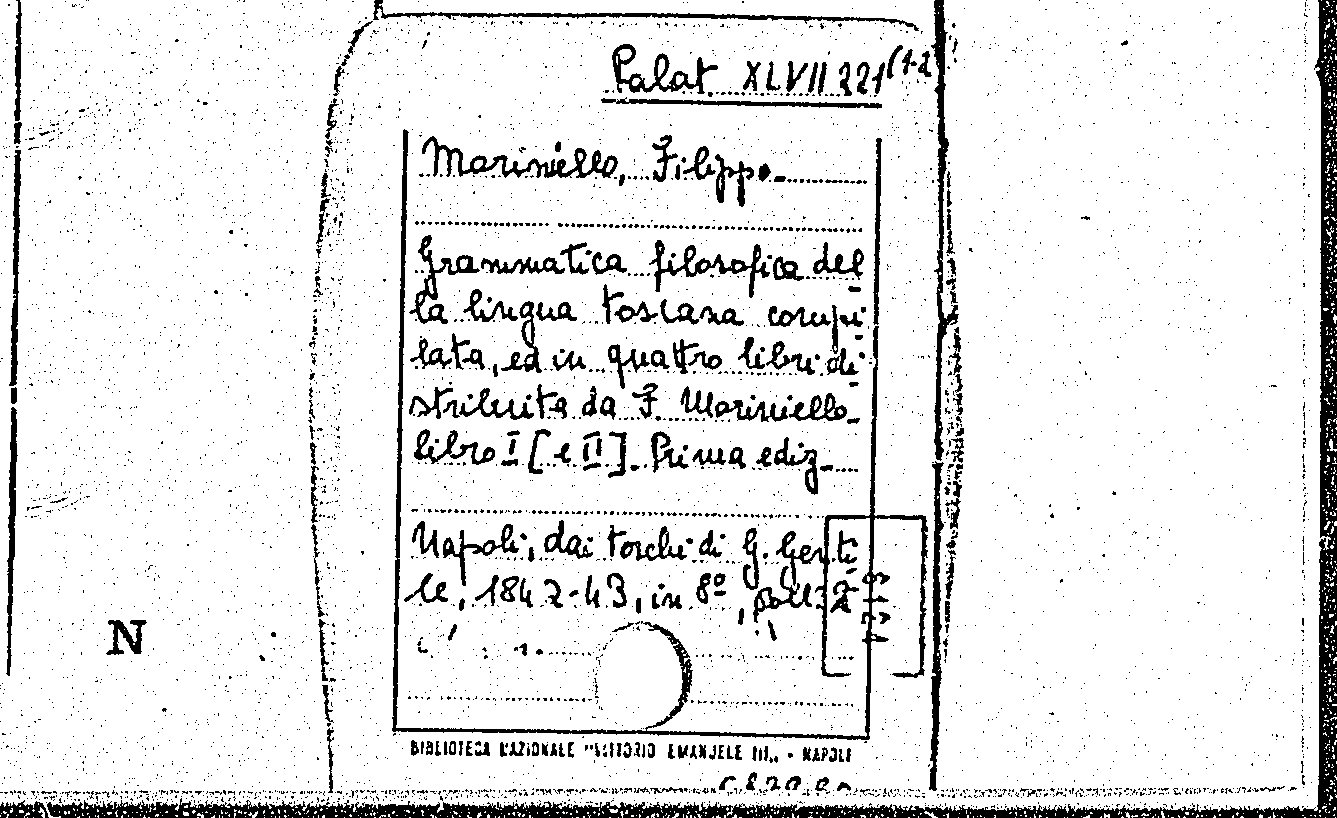 Palat. XLVII 221 (1-2
Mariniello, Filippo.
Grammatica filosofica del
la lingua toscana compi
lata, ed in quattro libri di
stribuita da F. Mariniello.
Libro I [e II]. Prima ediz.
Napoli, dai torchi di G. Genti
le, 1842-43, in 8º,
N
BIBLIOTECA NAZIONALE "VITTORIO EMANUELE III„ - NAPOLI